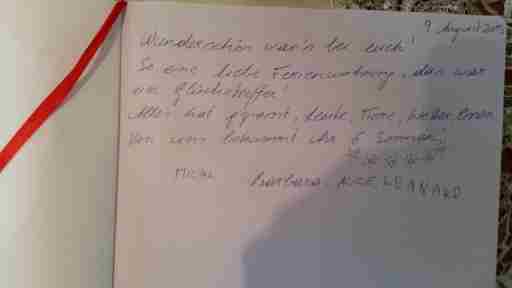 9 August
Wunderschön war's bei euch!
So eine liebe Ferienwohnung, das war
ein Glückstreffer!
Alles hat gepasst, Leute, Tiere, Wetter,
Von uns bekommt ihr 5 Sonnen!
Barbara, ALICE, LEONARD